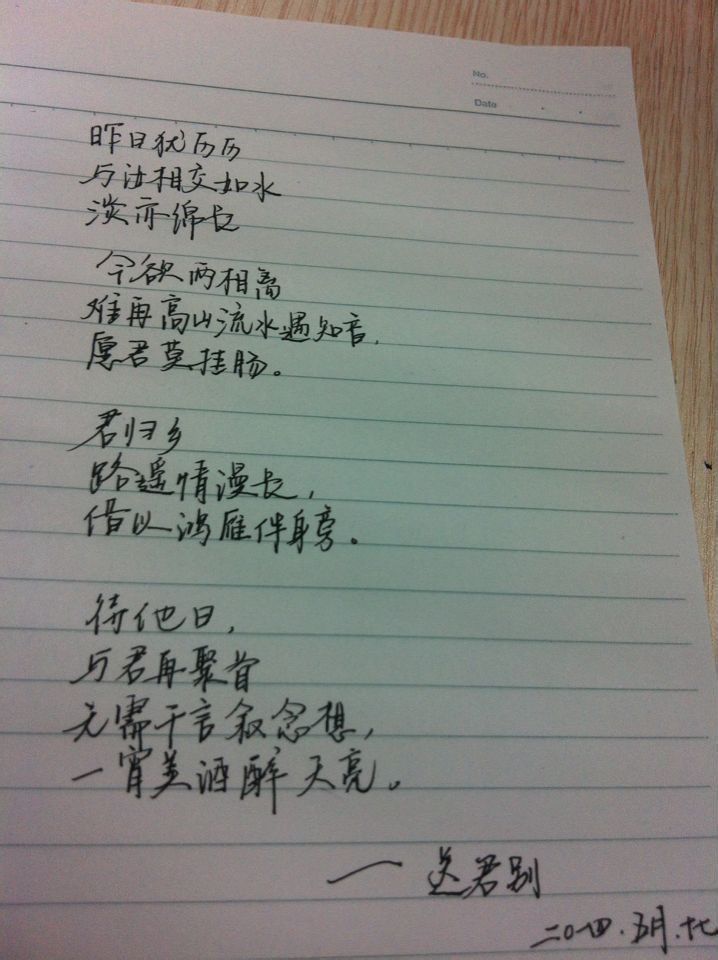 No.
Date
昨日犹历历
与汝相交如水
淡亦绵长
今欲两相离
难再高山流水遇知音,
愿君莫挂肠。
君归乡
路遥情漫长,
借以鸿雁伴身旁。
待他日,
与君再聚首
无需千言叙念想,
一宵美酒醉天亮。
—— 送君别
二〇一四.五月.廿七